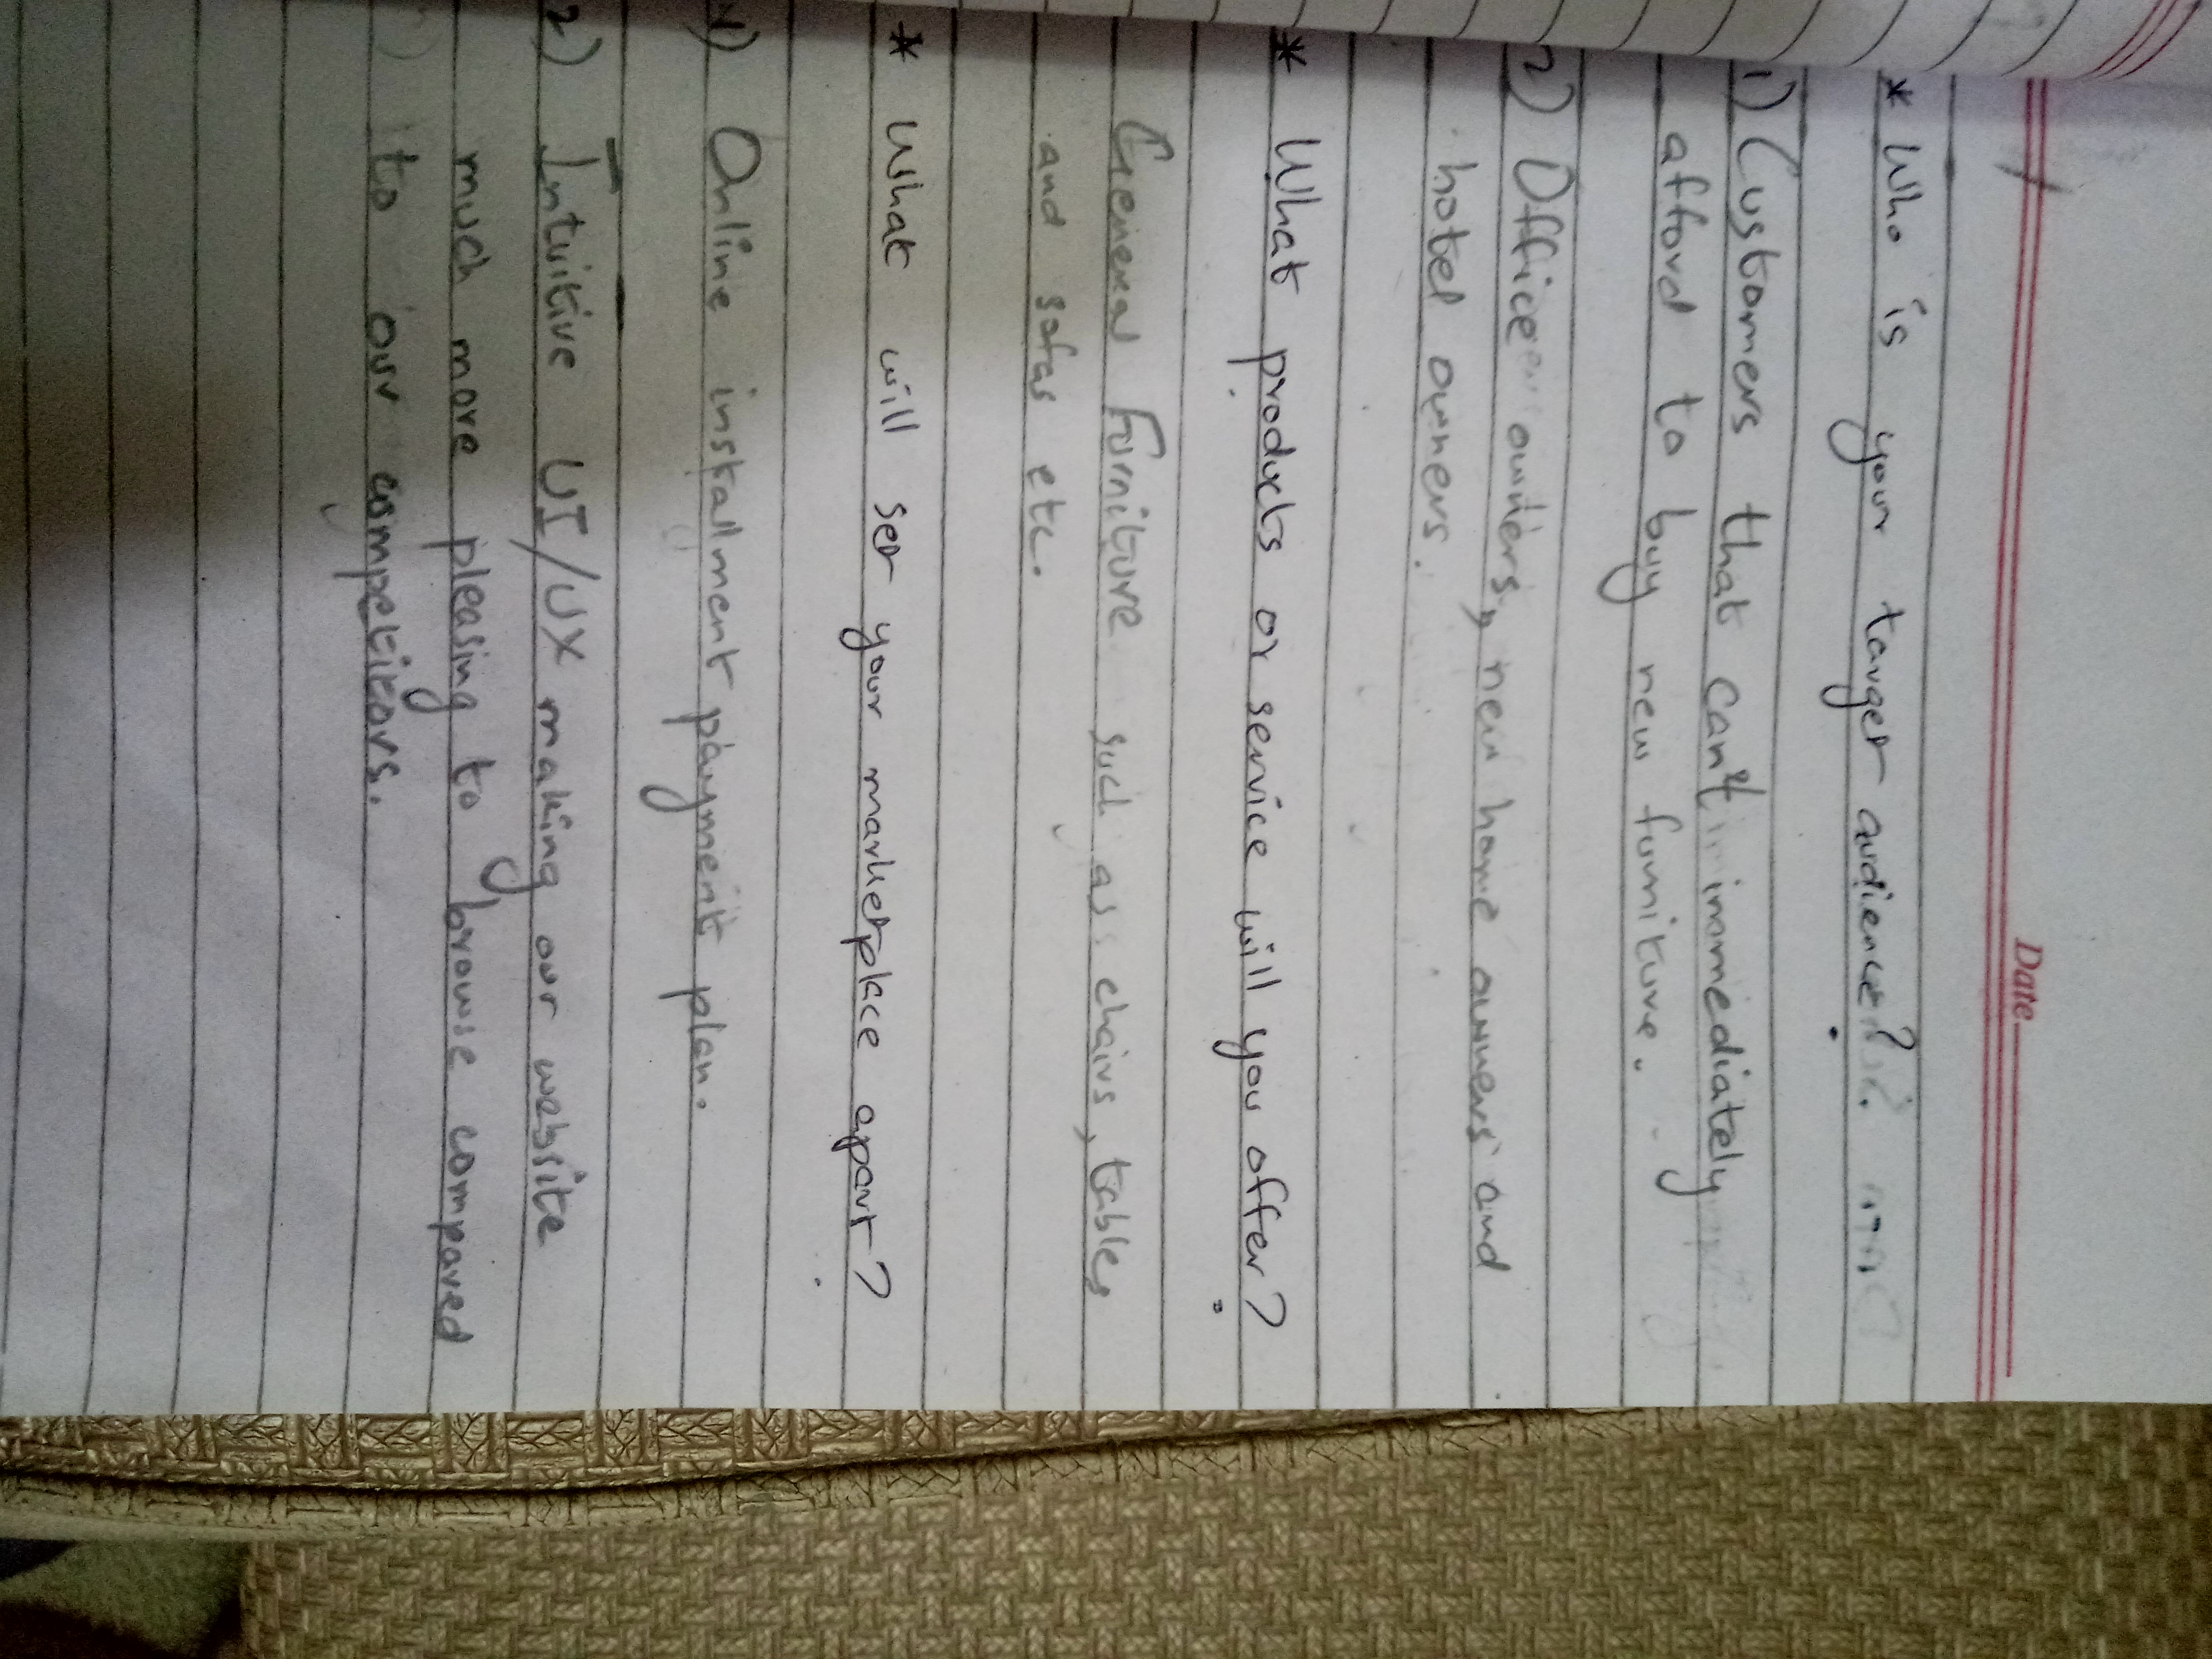 Date
* Who is your target audience?
1) Customers that can't immediately
afford to buy new furniture.
2) Office owners, new home owners and
hotel owners.
* What products or service will you offer?
General Furniture such as chairs, tables
and sofas etc.
* What will set your marketplace apart?
1) Online installment payment plan.
2) Intuitive UI/UX making our website
much more pleasing to browse compared
to our competitors.